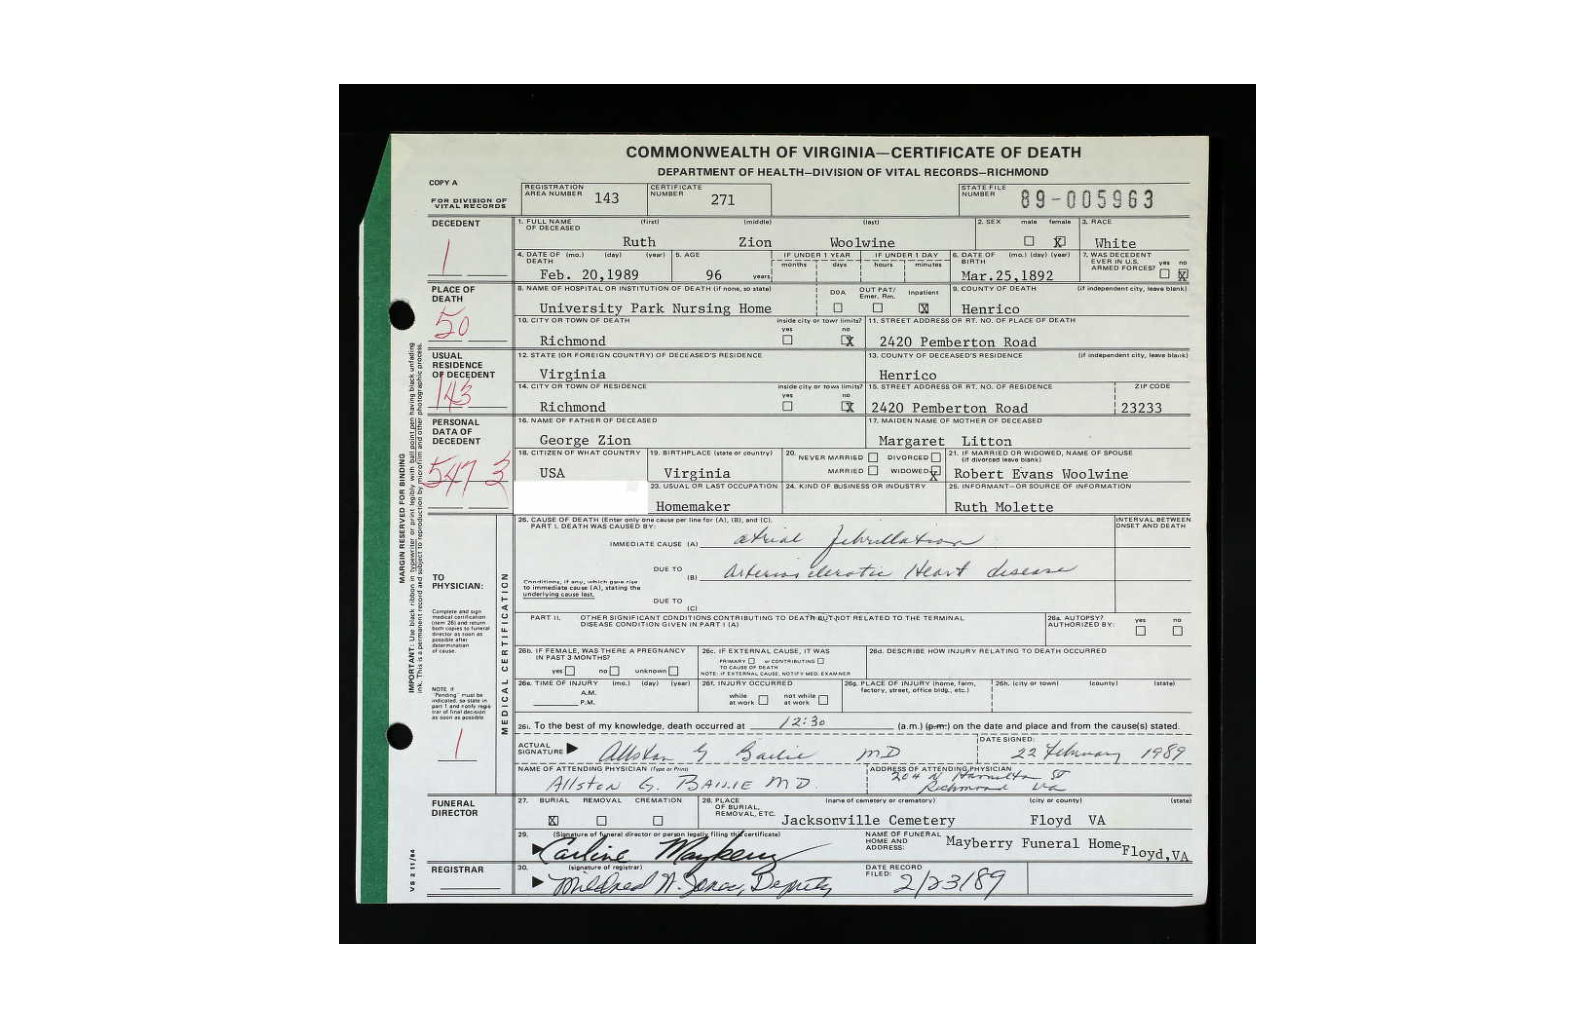 COMMONWEALTH OF VIRGINIA—CERTIFICATE OF DEATH
DEPARTMENT OF HEALTH—DIVISION OF VITAL RECORDS—RICHMOND
COPY A
FOR DIVISION OF VITAL RECORDS
REGISTRATION AREA NUMBER 143
CERTIFICATE NUMBER 271
STATE FILE NUMBER 89-005963
DECEDENT
1
1. FULL NAME OF DECEASED (first) (middle) (last)
Ruth Zion Woolwine
2. SEX male female X
3. RACE
White
4. DATE OF DEATH (mo.) (day) (year)
Feb. 20,1989
5. AGE
96 years
IF UNDER 1 YEAR months days
IF UNDER 1 DAY hours minutes
6. DATE OF BIRTH (mo.) (day) (year)
Mar.25,1892
7. WAS DECEDENT EVER IN U.S. ARMED FORCES? yes no X
PLACE OF DEATH
50
8. NAME OF HOSPITAL OR INSTITUTION OF DEATH (if none, so state)
University Park Nursing Home
DOA OUT PAT/ Emer. Rm. Inpatient X
9. COUNTY OF DEATH (if independent city, leave blank)
Henrico
10. CITY OR TOWN OF DEATH inside city or town limits? yes no X
Richmond
11. STREET ADDRESS OR RT. NO. OF PLACE OF DEATH
2420 Pemberton Road
USUAL RESIDENCE OF DECEDENT
143
12. STATE (OR FOREIGN COUNTRY) OF DECEASED'S RESIDENCE
Virginia
13. COUNTY OF DECEASED'S RESIDENCE (if independent city, leave blank)
Henrico
14. CITY OR TOWN OF RESIDENCE inside city or town limits? yes no X
Richmond
15. STREET ADDRESS OR RT. NO. OF RESIDENCE
2420 Pemberton Road
ZIP CODE
23233
PERSONAL DATA OF DECEDENT
547 3
16. NAME OF FATHER OF DECEASED
George Zion
17. MAIDEN NAME OF MOTHER OF DECEASED
Margaret Litton
18. CITIZEN OF WHAT COUNTRY
USA
19. BIRTHPLACE (state or country)
Virginia
20. NEVER MARRIED DIVORCED
MARRIED WIDOWED X
21. IF MARRIED OR WIDOWED, NAME OF SPOUSE (if divorced leave blank)
Robert Evans Woolwine
23. USUAL OR LAST OCCUPATION
Homemaker
24. KIND OF BUSINESS OR INDUSTRY
25. INFORMANT—OR SOURCE OF INFORMATION
Ruth Molette
MARGIN RESERVED FOR BINDING
IMPORTANT: Use black ribbon in typewriter or print legibly with ball point pen having black unfading ink. This is a permanent record and subject to reproduction by microfilm and other photographic process.
TO PHYSICIAN:
Complete and sign medical certification (item 26) and return both copies to funeral director as soon as possible after determination of cause.
NOTE: If "Pending" must be indicated, so state in part 1 and notify registrar of final decision as soon as possible.
1
MEDICAL CERTIFICATION
26. CAUSE OF DEATH (Enter only one cause per line for (A), (B), and (C).
PART I. DEATH WAS CAUSED BY:
INTERVAL BETWEEN ONSET AND DEATH
IMMEDIATE CAUSE (A) atrial fibrillation
DUE TO (B) Arteriosclerotic Heart disease
Conditions, if any, which gave rise to immediate cause (A), stating the underlying cause last.
DUE TO (C)
PART II. OTHER SIGNIFICANT CONDITIONS CONTRIBUTING TO DEATH BUT NOT RELATED TO THE TERMINAL DISEASE CONDITION GIVEN IN PART I (A)
26a. AUTOPSY? AUTHORIZED BY: yes no
26b. IF FEMALE, WAS THERE A PREGNANCY IN PAST 3 MONTHS? yes no unknown
26c. IF EXTERNAL CAUSE, IT WAS
PRIMARY or CONTRIBUTING TO CAUSE OF DEATH
NOTE: IF EXTERNAL CAUSE, NOTIFY MED. EXAMINER
26d. DESCRIBE HOW INJURY RELATING TO DEATH OCCURRED
26e. TIME OF INJURY (mo.) (day) (year) A.M. P.M.
26f. INJURY OCCURRED while at work not while at work
26g. PLACE OF INJURY (home, farm, factory, street, office bldg., etc.)
26h. (city or town) (county) (state)
26i. To the best of my knowledge, death occurred at 12:30 (a.m.) (p.m.) on the date and place and from the cause(s) stated.
ACTUAL SIGNATURE Allston G Bailie MD
DATE SIGNED: 22 February 1989
NAME OF ATTENDING PHYSICIAN (Type or Print)
Allston G. BAILIE MD.
ADDRESS OF ATTENDING PHYSICIAN
204 N Hamilton St
Richmond Va
FUNERAL DIRECTOR
27. BURIAL REMOVAL CREMATION
X
28. PLACE OF BURIAL, REMOVAL, ETC. (name of cemetery or crematory) (city or county) (state)
Jacksonville Cemetery Floyd VA
29. (Signature of funeral director or person legally filing this certificate)
Carline Mayberry
NAME OF FUNERAL HOME AND ADDRESS: Mayberry Funeral Home Floyd,VA
REGISTRAR
30. (signature of registrar)
Mildred W. Jones, Deputy
DATE RECORD FILED: 2/23/89
VS 2 11/84